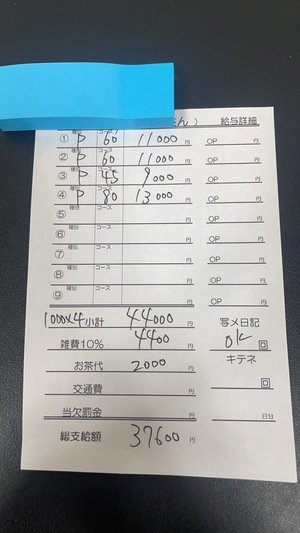 さん） 給与詳細
種別 コース
① P 60 11000 円 OP 円
種別 コース
② P 60 11000 円 OP 円
種別 コース
③ P 45 9000 円 OP 円
種別 コース
④ P 80 13000 円 OP 円
種別 コース
⑤ 円 OP 円
種別 コース
⑥ 円 OP 円
種別 コース
⑦ 円 OP 円
種別 コース
⑧ 円 OP 円
種別 コース
⑨ 円 OP 円
1000×4 小計 44000 円 写メ日記
雑費10% 4400 円 OK 回
お茶代 2000 円 キテネ
交通費 円 回
当欠罰金 円 日分
総支給額 37600 円